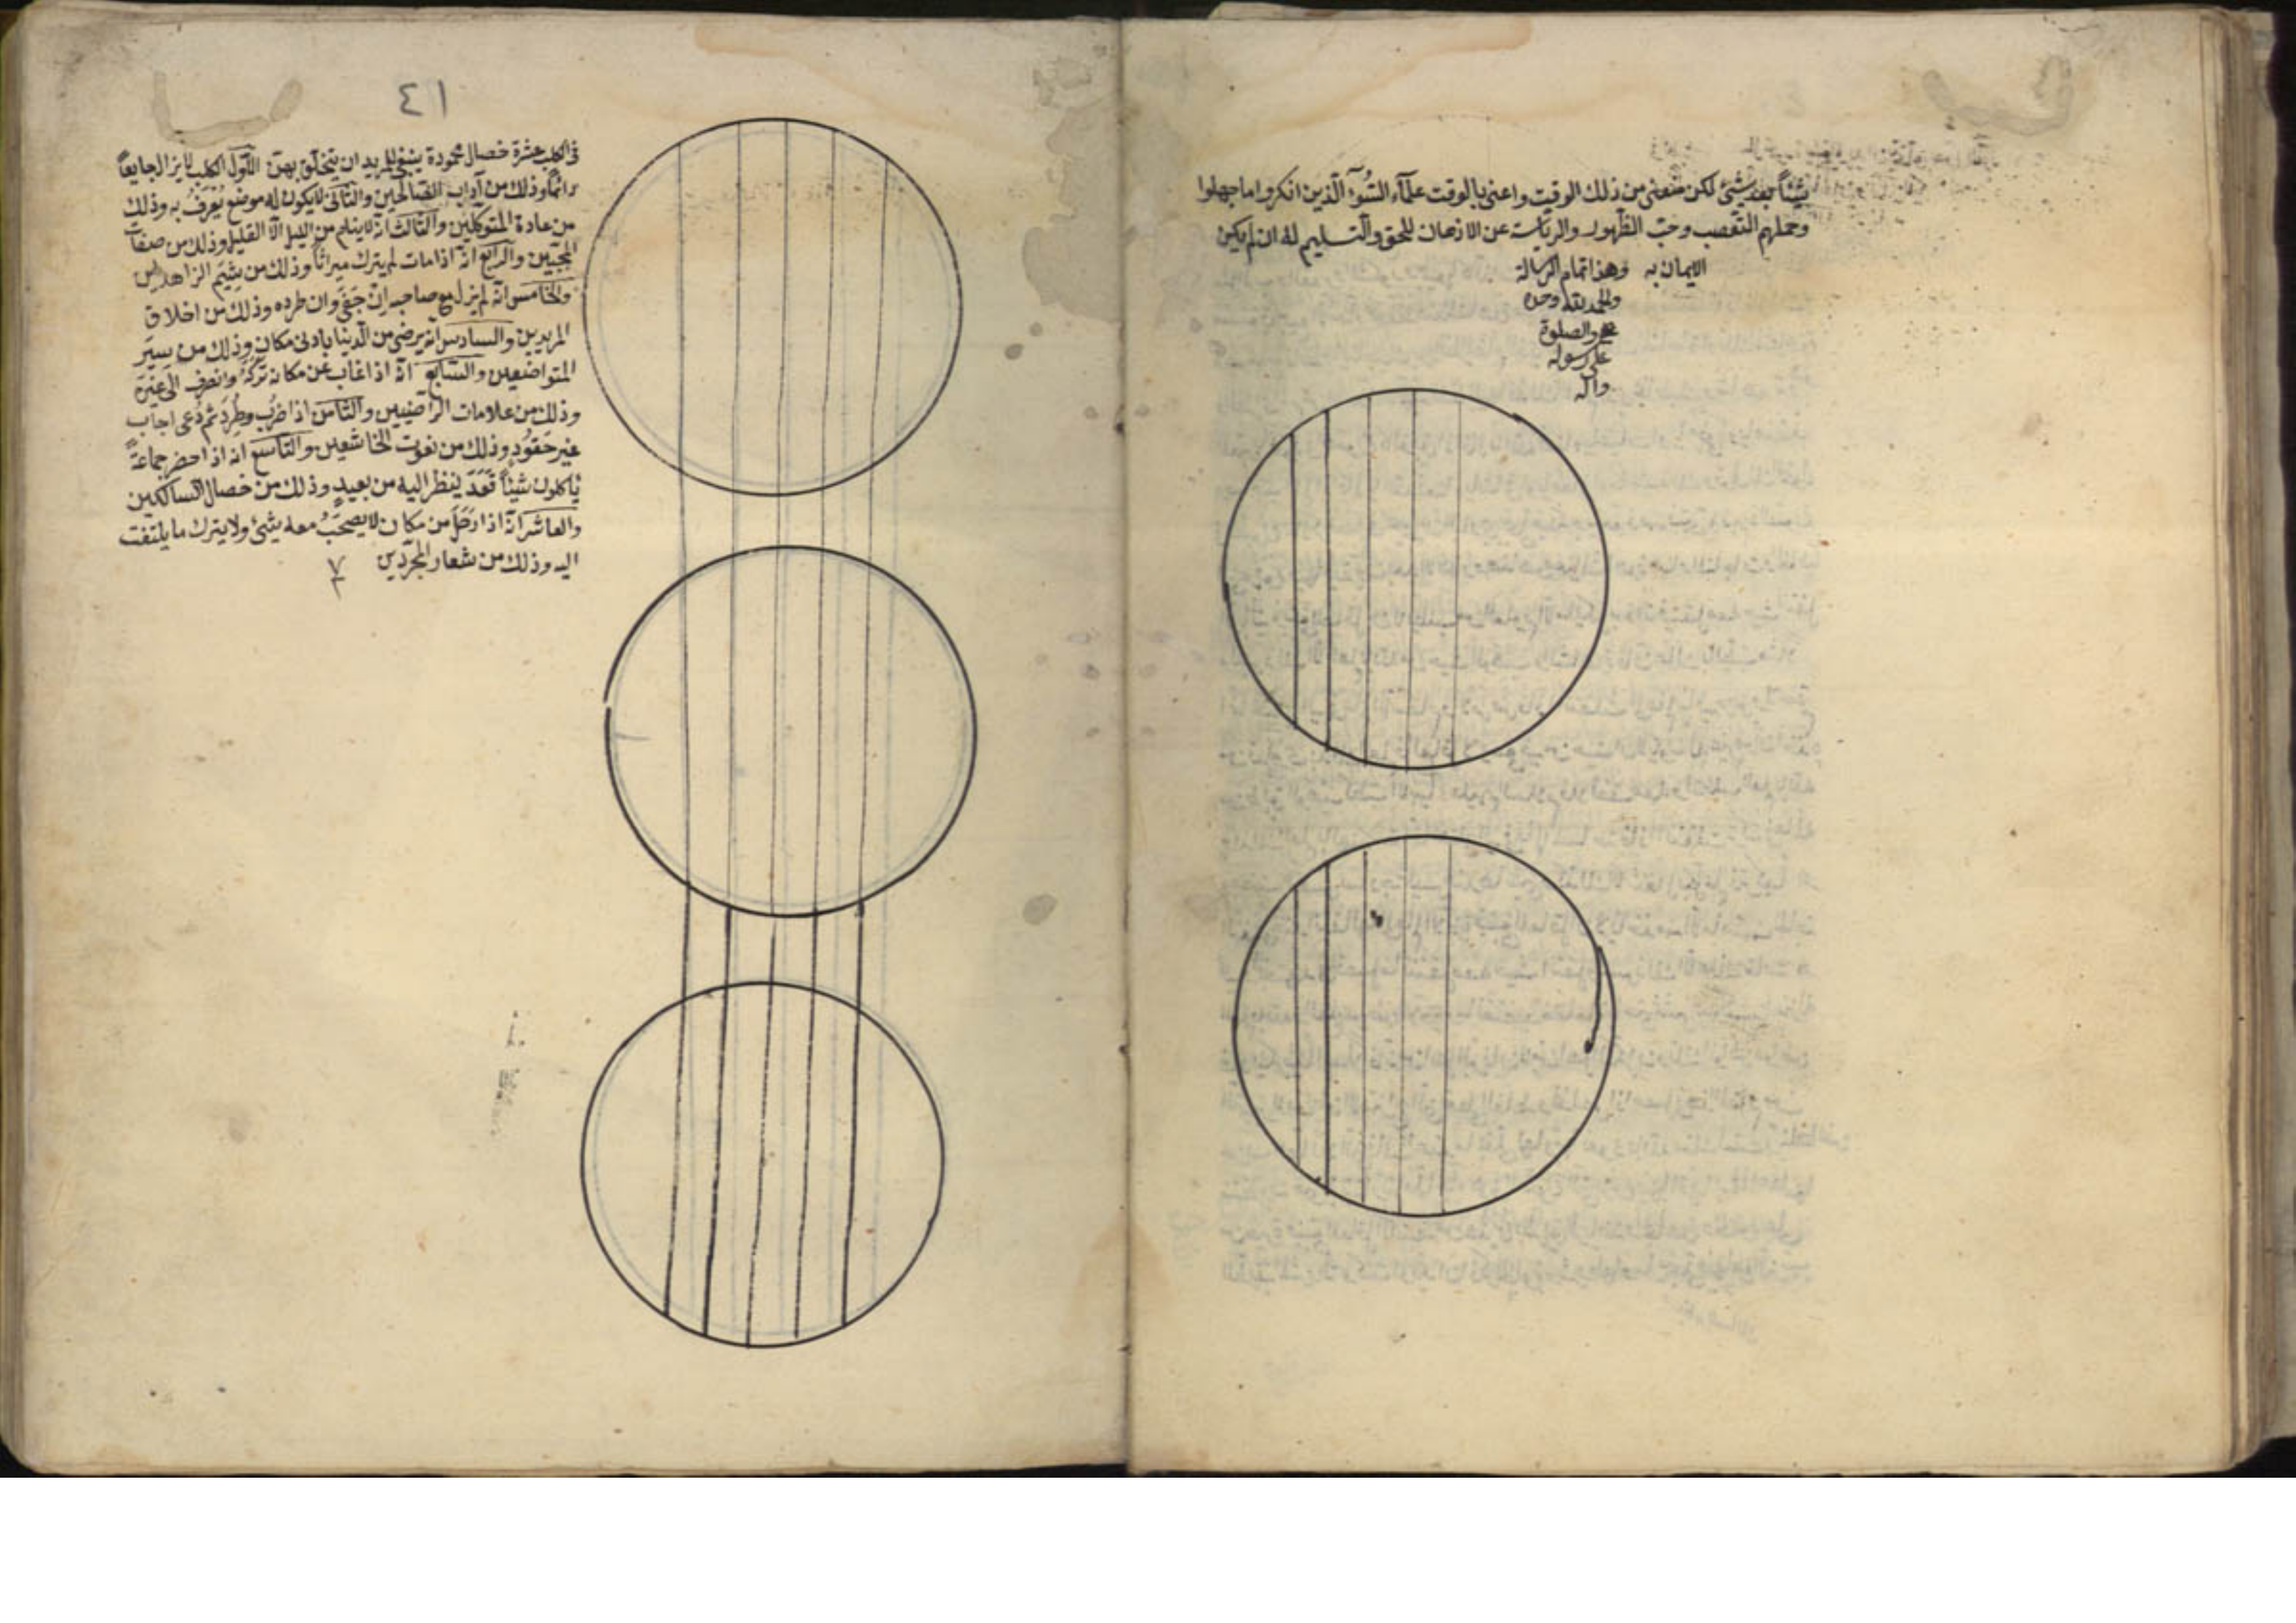 شيئاً بعد شيئ لكن منعنى من ذلك الوقت واعنى بالوقت علمآء السّوء الّذين انكروا ما جهلوا
وحملهم التّعصب وحبّ الظّهور والرياسة عن الاذعان للحق والتسليم له ان لم يكن
الايمان به وهذا تمام الرسالة
والحمد لله وحده
والصلوة
على رسوله
وآله
٤١
فى الكلب عشرة خصال محمودة ينبغى للمريد ان يتخلّق بهنّ الاوّل الكلب لا يزال جايعاً
دائماً وذلك من آداب الصّالحين والثّانى لا يكون له موضع يُعرَفُ به وذلك
من عادة المتوكّلين والثّالث انّه لا ينام من الليل الّا القليل وذلك من صفات
المحبّين والرّابع انّه اذا مات لم يترك ميراثاً وذلك من شِيَم الزاهدين
والخامس انّه لم يزل مع صاحبه ان جفى وان طرده وذلك من اخلاق
المريدين والسادس انّه يرضى من الدّنيا بادنى مكان وذلك من سِيَر
المتواضعين والسّابع انّه اذا غاب عن مكانه تركه وانصرف الى غيره
وذلك من علامات الرّاضيين والثّامن اذا ضُرِب وطُرِد ثم دُعى اجاب
غير حقود وذلك من نعوت الخاشعين والتّاسع انه اذا حضر جماعةً
يأكلون شيئاً قعد ينظر اليه من بعيد وذلك من خصال المساكين
والعاشر انّه اذا رحل من مكان لا يصحبُ معه شيئ ولا يترك ما يلتفت
اليه وذلك من شعار المجرّدين